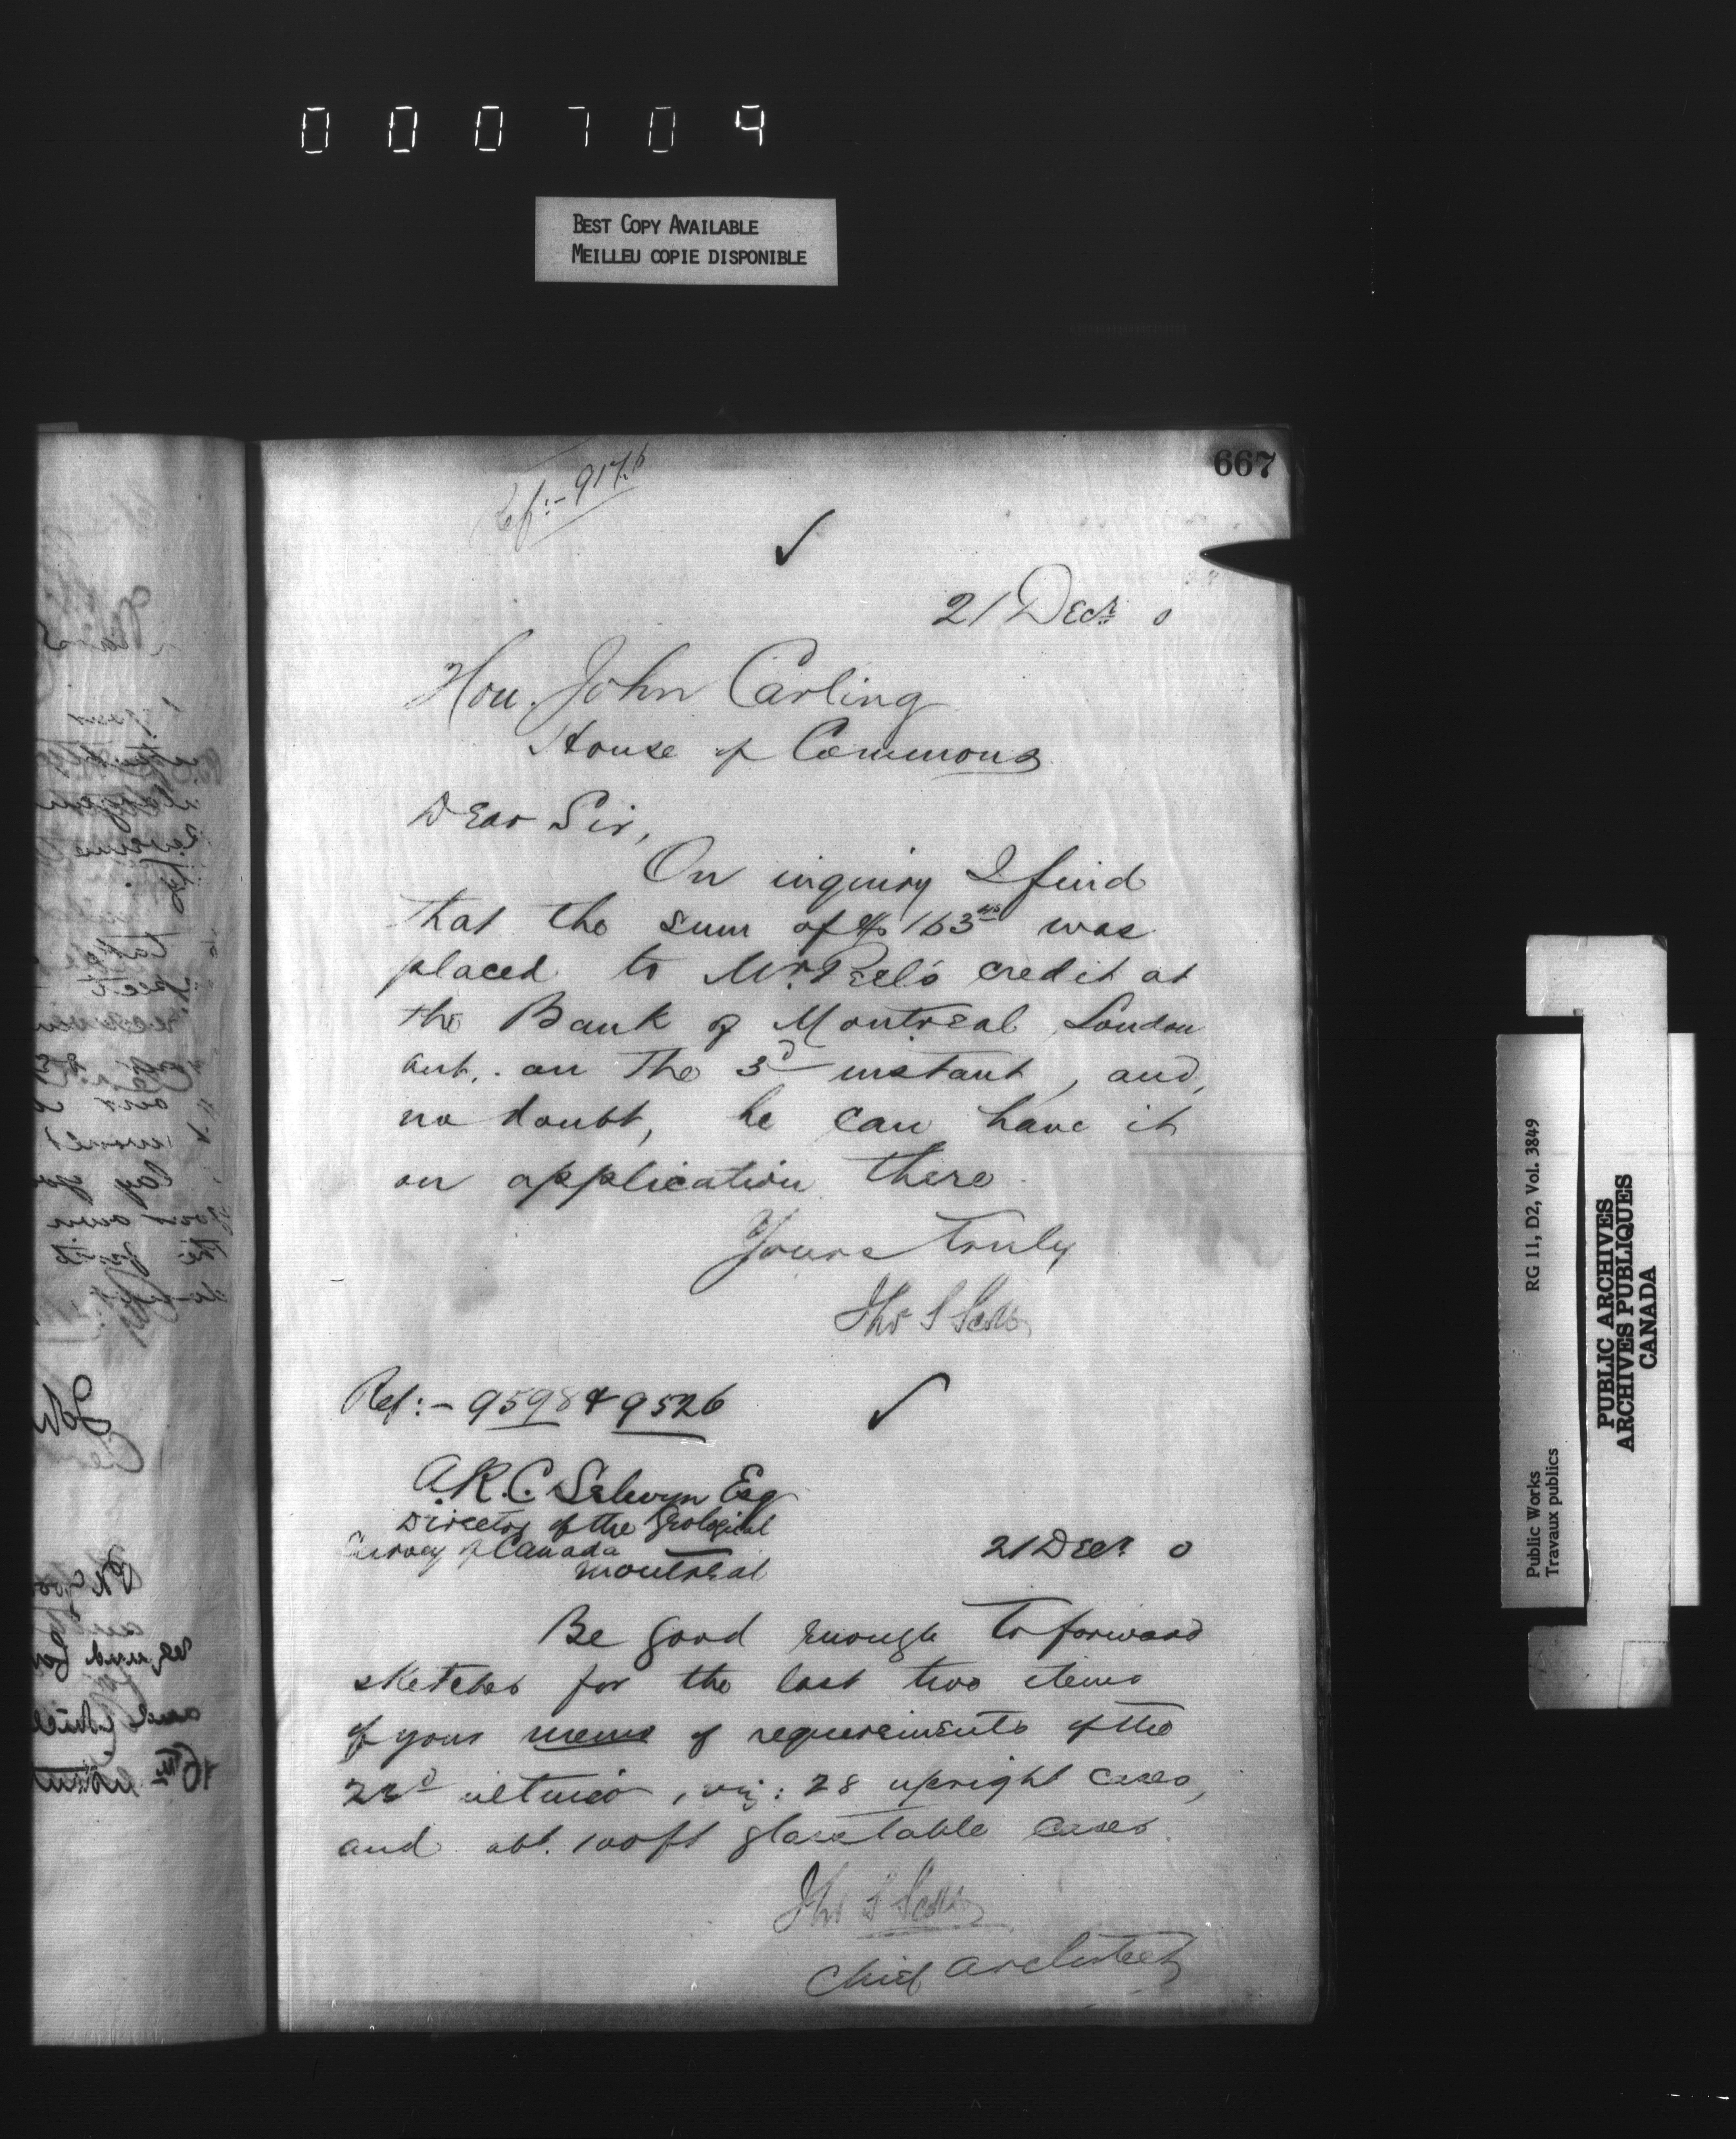 000704
BEST COPY AVAILABLE
MEILLEU COPIE DISPONIBLE
667
Ref:- 9176
✓
21 Decr. 0
Hon. John Carling
House of Commons
Dear Sir,
On inquiry I find
that the sum of $163 was
placed to Mr. Peel's credit at
the Bank of Montreal London
Ont. on the 3d instant, and,
no doubt, he can have it
on application there.
Yours truly
Thos S Scott
Ref:- 9598 & 9526
✓
A.R.C. Selwyn Esq
Director of the Geological
Survey of Canada
Montreal
21 Decr. 0
Be good enough to forward
sketches for the last two items
of your memo of requirements of the
ultimo, viz: 28 upright cases,
and abt. 100 ft glass table cases.
Thos S Scott
Chief Architect
RG 11, D2, Vol. 3849
Public Works
Travaux publics
PUBLIC ARCHIVES
ARCHIVES PUBLIQUES
CANADA